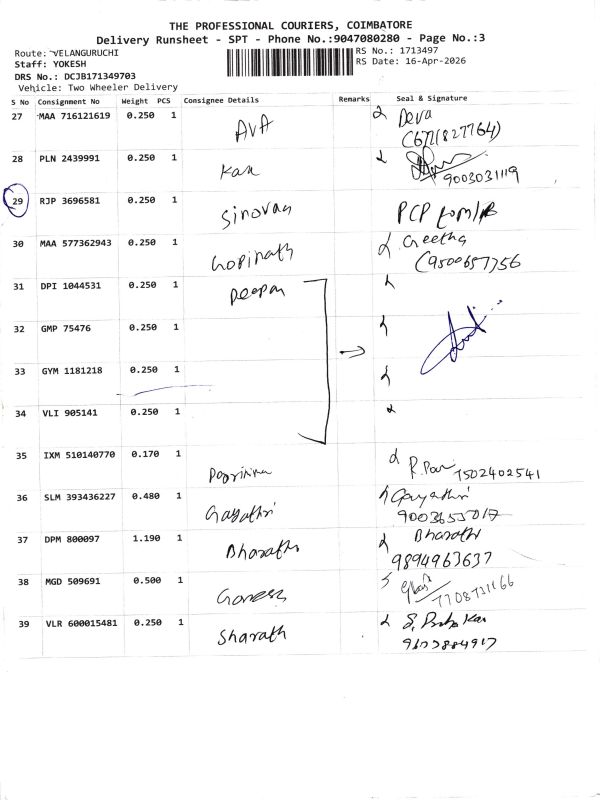 THE PROFESSIONAL COURIERS, COIMBATORE
Delivery Runsheet - SPT - Phone No.:9047080280 - Page No.:3
Route: VELANGURUCHI
Staff: YOKESH
DRS No.: DCJB171349703
Vehicle: Two Wheeler Delivery
RS No.: 1713497
RS Date: 16-Apr-2026
S No Consignment No Weight PCS Consignee Details Remarks Seal & Signature
27 MAA 716121619 0.250 1 AVA Deva
28 PLN 2439991 0.250 1 Kan 9003031119
29 RJP 3696581 0.250 1 Sinovan PCP
30 MAA 577362943 0.250 1 Gopinath Geetha
31 DPI 1044531 0.250 1 Deepan
32 GMP 75476 0.250 1
33 GYM 1181218 0.250 1
34 VLI 905141 0.250 1
35 IXM 510140770 0.170 1 7502402541
36 SLM 393436227 0.480 1 Gayathri Gayathri
37 DPM 800097 1.190 1 Bharath Bharath
9894963637
38 MGD 509691 0.500 1 Ganesh
39 VLR 600015481 0.250 1 Sharath